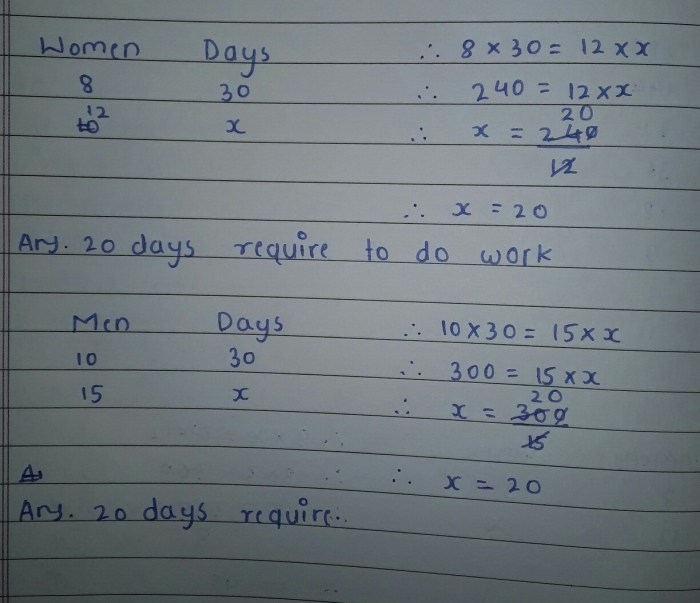 Women Days ∴ 8 × 30 = 12 × x
8 30 ∴ 240 = 12 × x
12 20
10 x ∴ x = 240
12
∴ x = 20
Ans. 20 days require to do work
Men Days ∴ 10 × 30 = 15 × x
10 30 ∴ 300 = 15 × x
20
15 x ∴ x = 300
15
A ∴ x = 20
Ans. 20 days require..